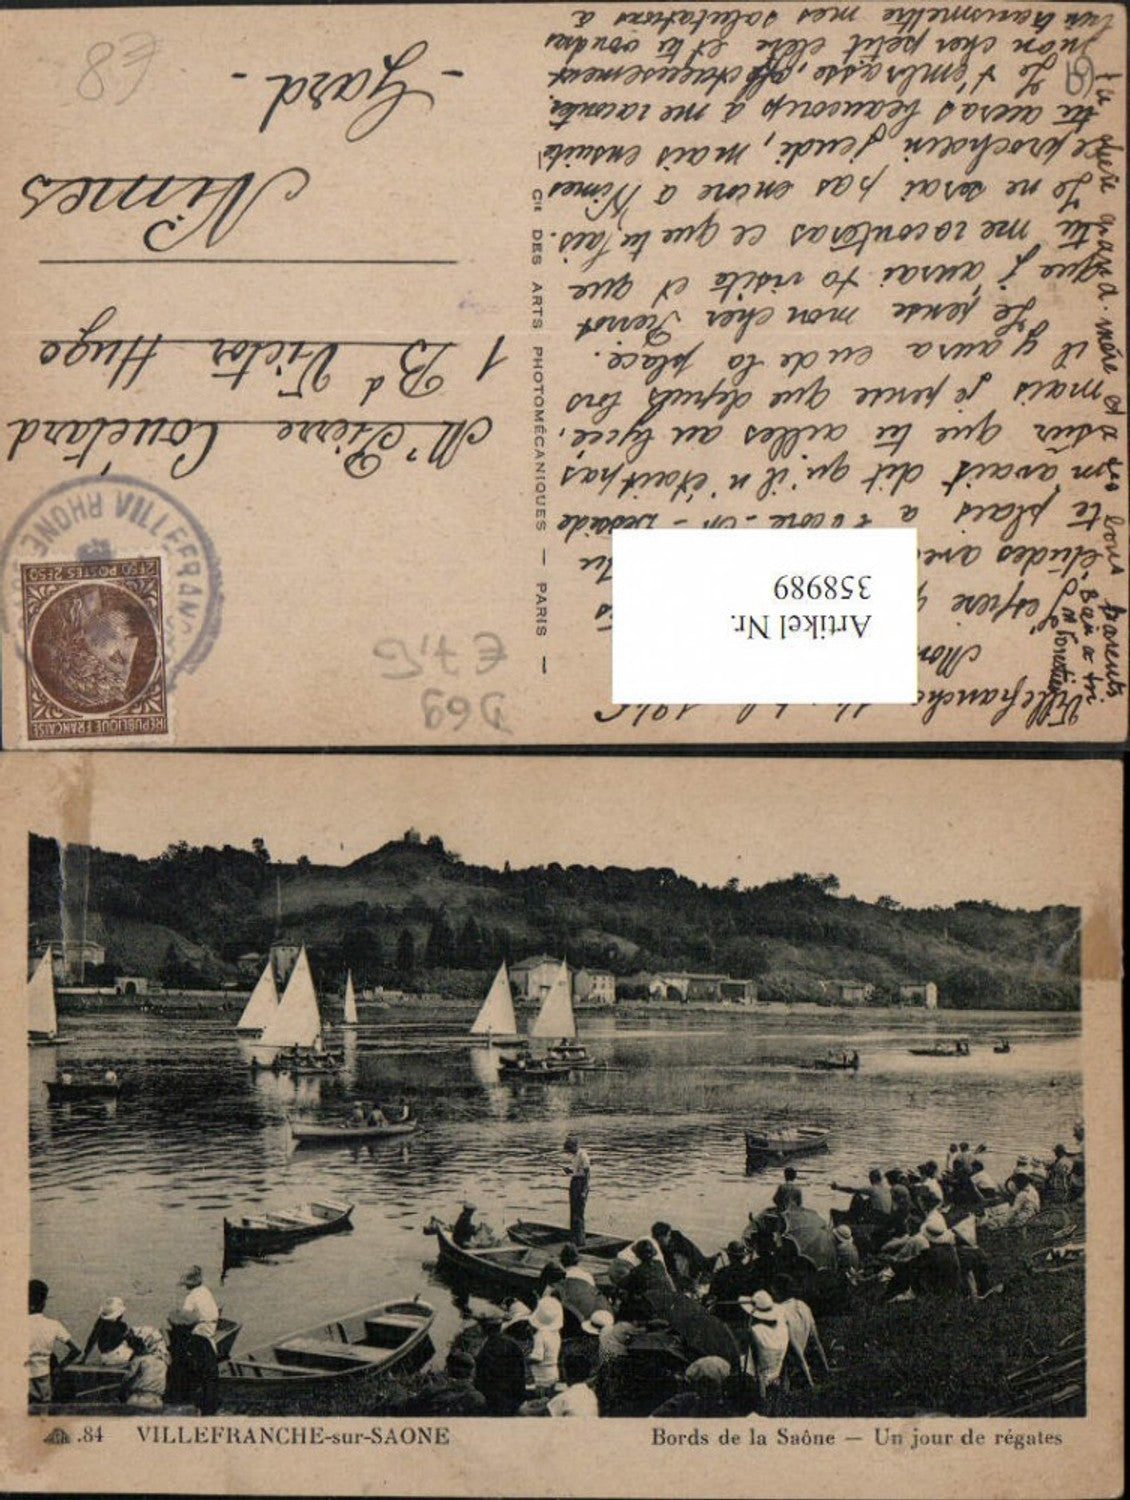 Villefranche
Mon
J'espère
études avec
te plais a
m'avait dit qu'il n'était pas
sûr que tu ailles au lycée,
mais je pense que depuis lors
il y aura eu de la place.
Je pense mon cher Pierrot
que j'aurai ta visite et que
tu me raconteras ce que tu fais.
Je ne serai pas encore à Nîmes
le prochain jeudi, mais ensuite
tu auras beaucoup à me raconter.
Je t'embrasse, affectueusement
mon cher petit élève et tu voudras
bien transmettre mes salutations à
ta chère grand-mère et
à tes bons parents
Bien à toi
CIE DES ARTS PHOTOMÉCANIQUES — PARIS —
D69
€ 7,50
RÉPUBLIQUE FRANÇAISE
2F50 POSTES 2F50
VILLEFRANCHE
RHONE
Mr Pierre Couëtard
1 Bd Victor Hugo
Nîmes
- Gard -
€8
Artikel Nr.
358989
.84 VILLEFRANCHE-sur-SAONE
Bords de la Saône — Un jour de régates